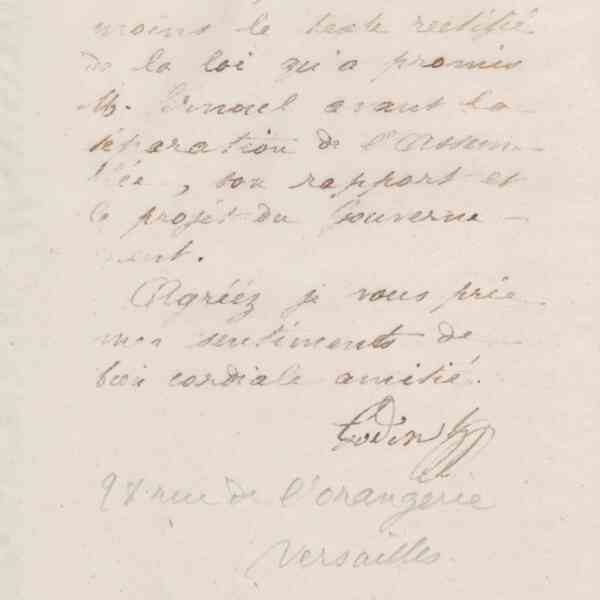 moins le texte rectifié
de la loi qu'a promis
M. avant la
séparation de l'Assem-
blée, son rapport et
le projet du Gouverne-
ment.
Agréez je vous prie
mes sentiments de
bien cordiale amitié.
Godin
rue de l'orangerie
Versailles.